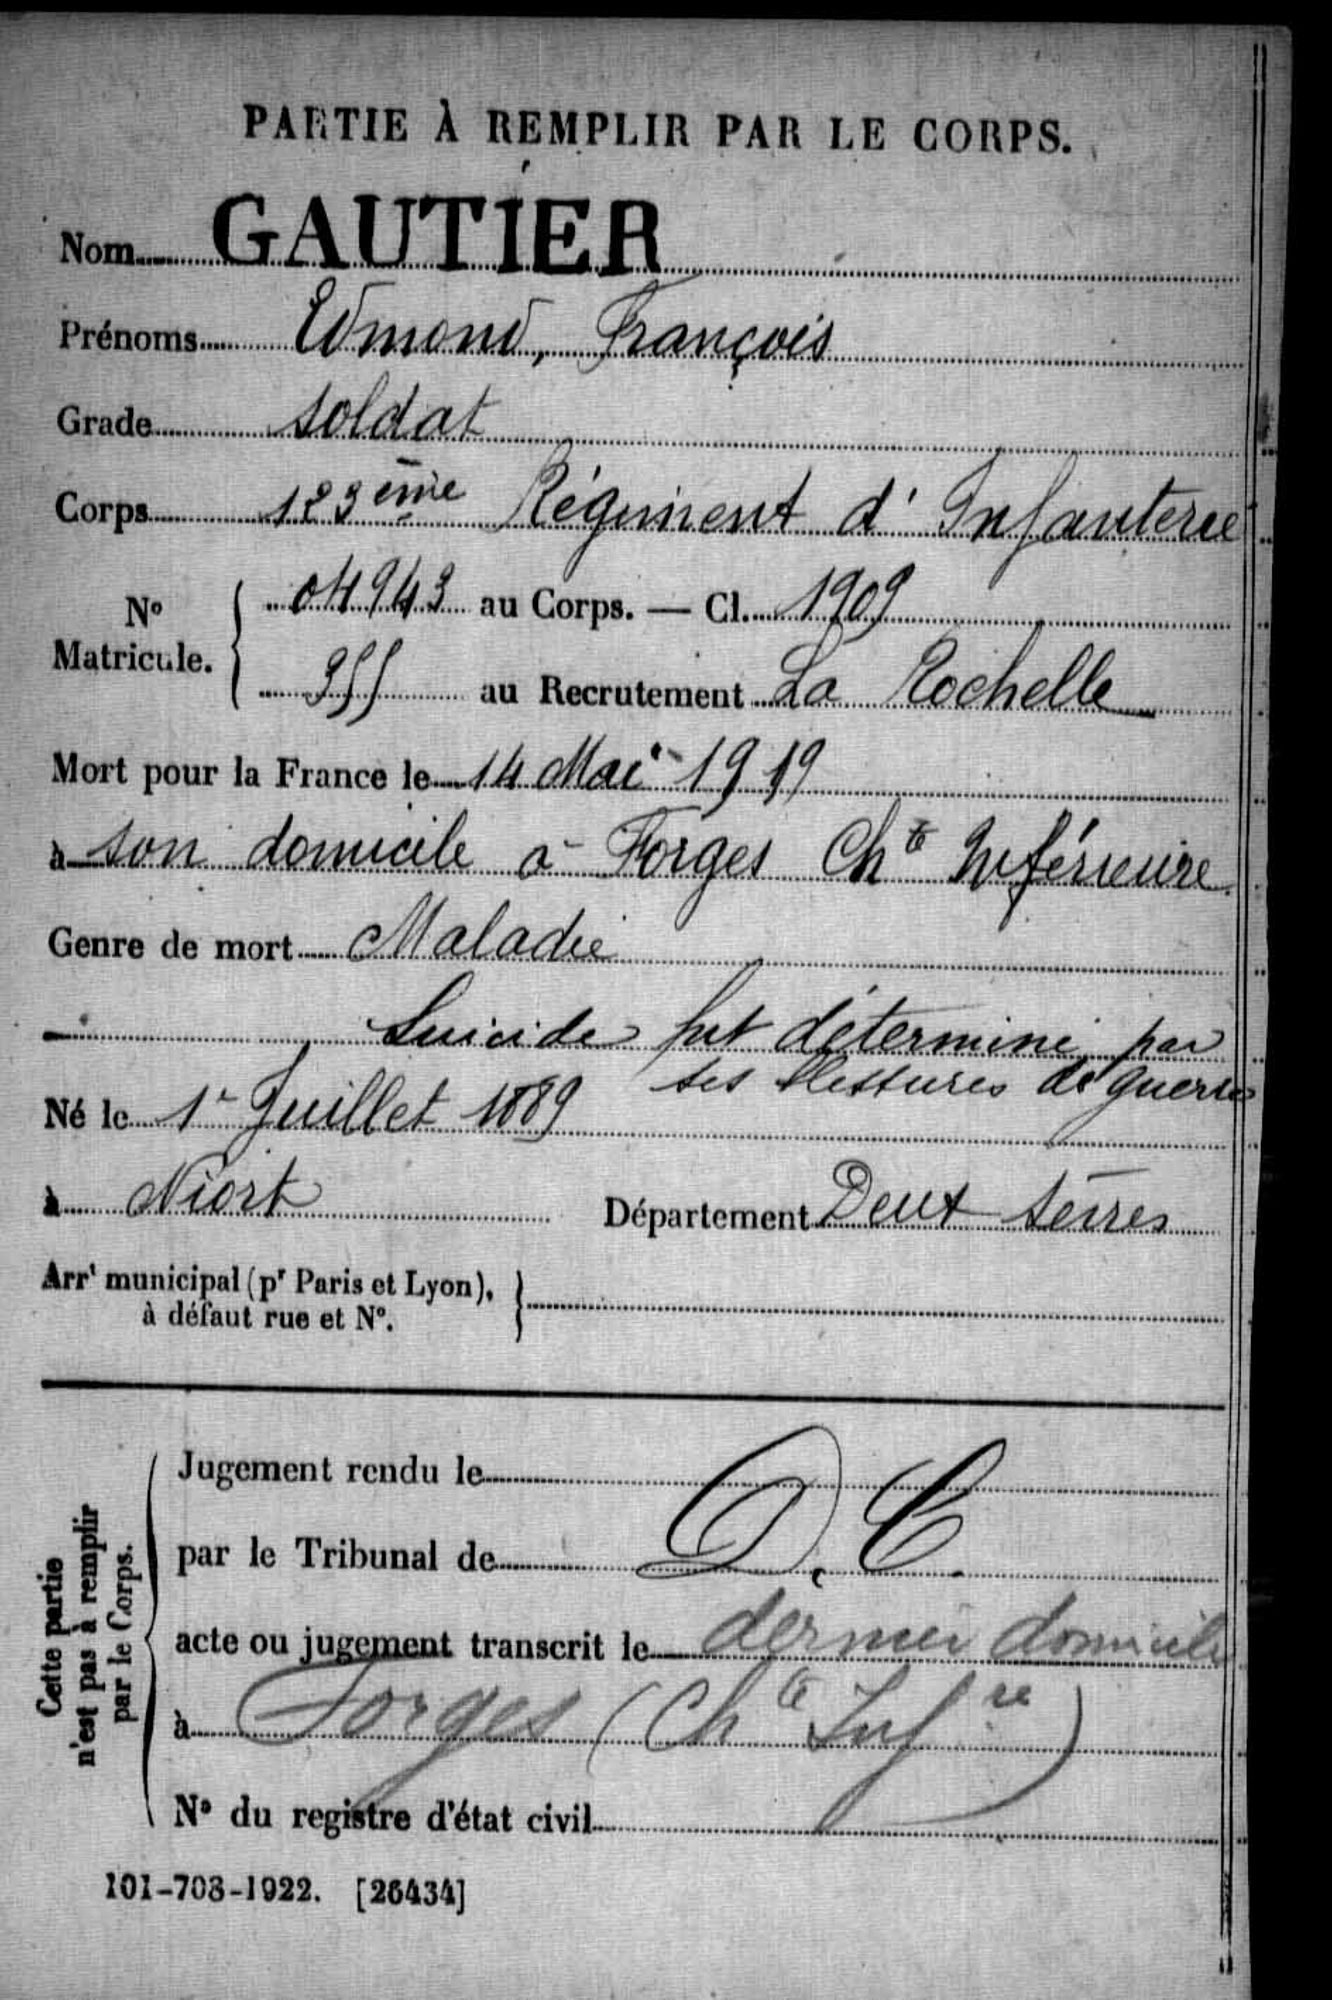 PARTIE À REMPLIR PAR LE CORPS.
Nom GAUTIER
Prénoms Edmond, François
Grade soldat
Corps 123ème Régiment d'Infanterie
No Matricule. 04943 au Corps. — Cl. 1909
355 au Recrutement La Rochelle
Mort pour la France le 14 Mai 1919
à son domicile à Forges Chte Inférieure
Genre de mort Maladie
Suicide fut déterminé par
ses blessures de guerre
Né le 1r Juillet 1889
à Niort Département Deux Sèvres
Arrt municipal (pr Paris et Lyon),
à défaut rue et No.
Cette partie
n'est pas à remplir
par le Corps.
Jugement rendu le
par le Tribunal de D. C.
acte ou jugement transcrit le dernier domicile
à Forges (Chte Infre)
No du registre d'état civil
101-708-1922. [26434]